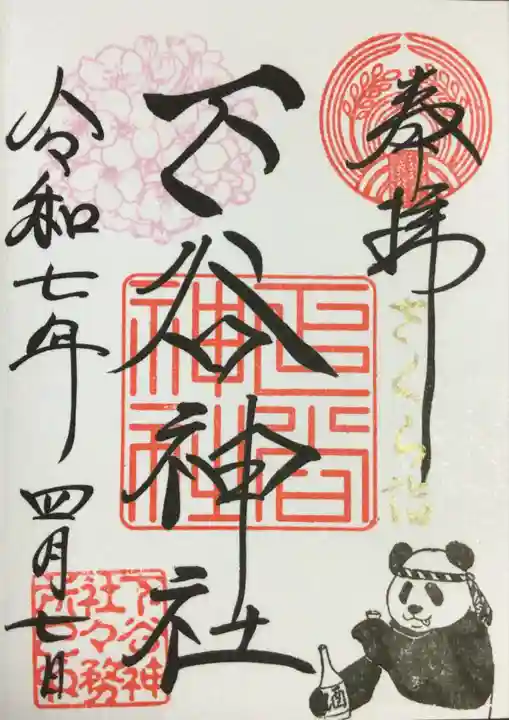 奉拝
さくら詣
下谷神社
下谷神社
令和七年四月七日
下谷神
社々務
酒